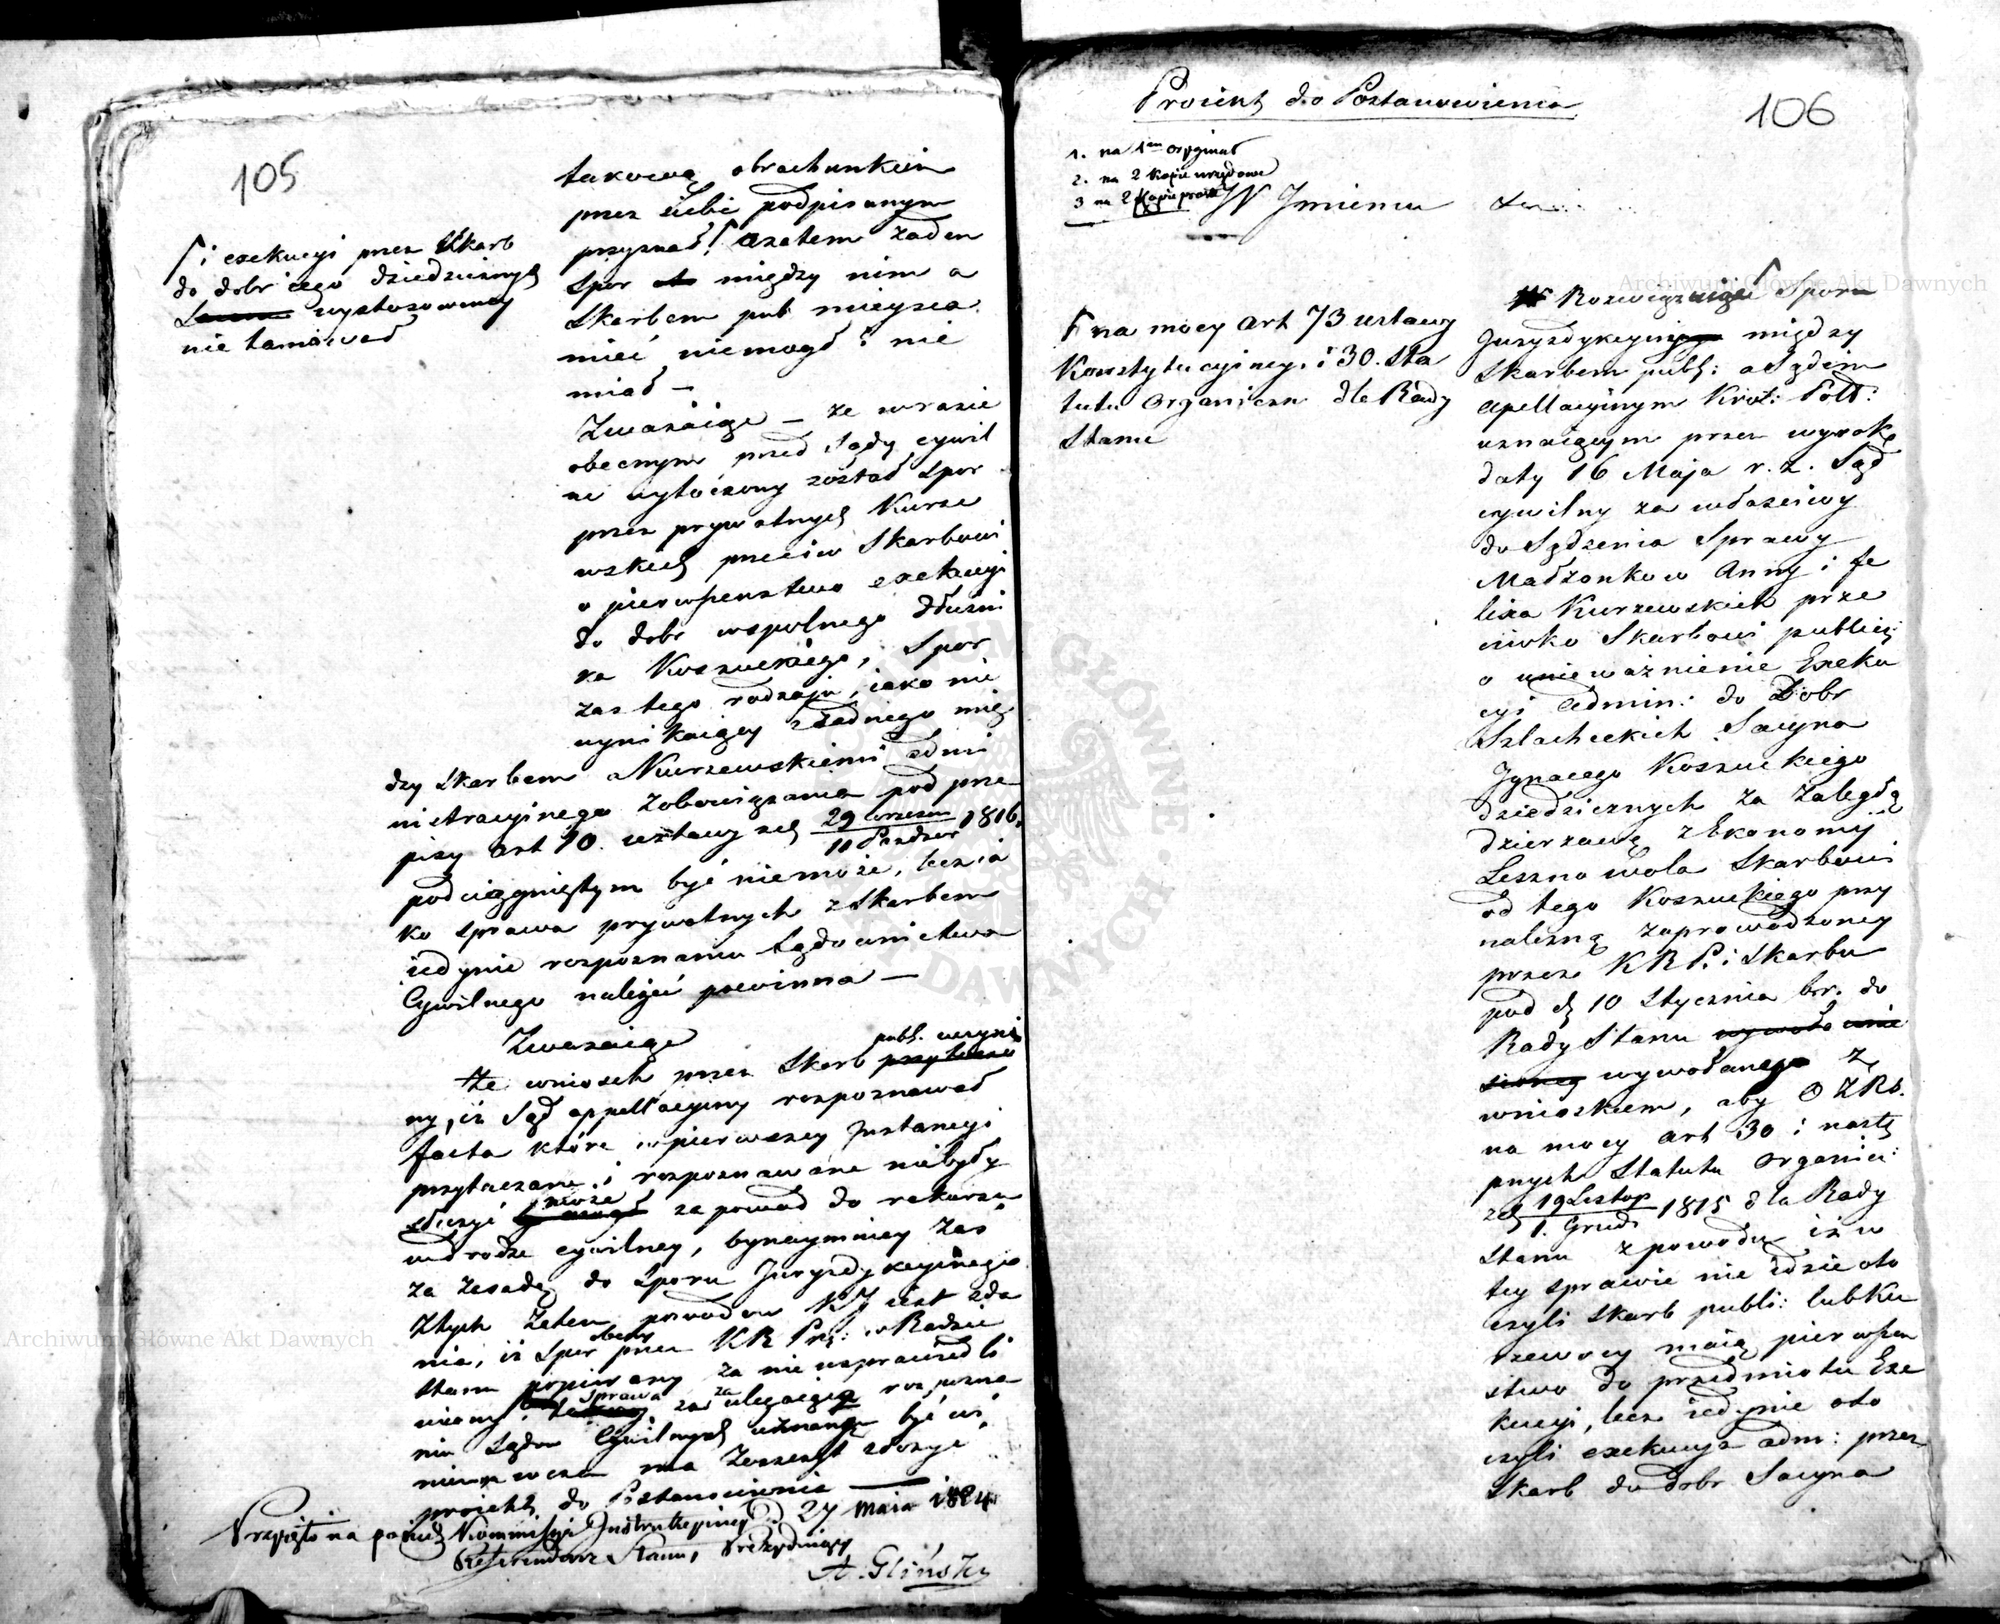 105
takową obrachunkiem
przez siebie podpisanym
przyznał azatem żaden
spor między nim a
Skarbem pub mieysca
mieć niemogł i nie
miał —
⌈ i exekucyi przez Skarb
do dobr iego dziedzicznych
wystosowaney
nie tamował
Zważaiąc — że wrazie
obecnym przed Sądy cywil
ne wytoczony został spor
przez prywatnych Kurze
wskich przeciw Skarbowi
o pierwszenstwo exekucyi
do dobr wspolnego dłużni
ka Koszuckiego, Spor
zas tego rodzaju, iako nie
wynikaiący z żadnego mię
dzy Skarbem a Kurzewskiemi admi
nistracyinego zobowiązania pod prze
pisy art 10. ustawy zd 29 wrzesn / 11 Pazdzier 1816.
podciągniętym być niemoże, lecz ia
ko sprawa prywatnych z Skarbem
iedynie rozpoznaniu Sądownictwa
Cywilnego należeć powinna —
Zważaiąc
że wniosek przez Skarb publ. uczynio
ny, iż Sąd appellacyiny rozpoznawał
facta które w pierwszey Instancyi
przytaczane i rozpoznawane niebyły
służyć może za powod do rekursu
wdrodze cywilney, bynaymniey zas
za zasadę do Sporu Juryzdykcyinego
Ztych zatem powodow KJ iest zda
nia, iż Spor obecny przez KR Prz: w Radzie
Stanu popierany za nie usprawiedli
wiony, sprawa za ulegaiącą rozpozna
niu Sądow Cywilnych uznaną być wi
nna wczem ma Zaszczyt złożyć
proiekt do Postanowienia —
Przyięto na posiedz Kommissyi Instrukcyiney d 27 Maia 1824
Referendarz Stanu, Prezyduiący
A. Glinsky
Proiekt do Postanowienia
106
1. na 1en oryginał
2. na 2 kopie urzędowe
3 na 2 kopie proste
W Imieniu &c
⌈ na mocy art 73 ustawy
Konstytucyiney. i 30. Sta
tutu Organiczn dla Rady
Stanu
Rozwiązuiąc ⌈ Sporu
Juryzdykcyin między
Skarbem publ: a Sądem
apellacyinym Krol: Pols:
uznaiącym przez wyrok
daty 16 Maja r. z. Sąd
cywilny za właściwy
do Sądzenia Sprawy
Małżonkow Anny i Fe
lixa Kurzewskich prze
ciwko Skarbowi publicz:
o unieważnienie Exeku
cyi admin: do Dobr
Szlacheckich Sacyna
Ignacego Koszuckiego
dziedzicznych za zaległą
dzierzawę z Ekonomij
Leszno wola Skarbowi
od tego Koszuckiego przy
należną zaprowadzoney
przez KRP. i Skarbu
pod d 10 Stycznia br. do
Rady Stanu
wywołanego z
wnioskiem, aby
na mocy art 30 i nastę
pnych Statutu Organicz:
zd 19 Listop / 1. Grud 1815 dla Rady
Stanu z powodu iż w
tey sprawie nie idzie oto
czyli Skarb publi: lub Ku
rzewscy maią pierwszen
stwo do przedmiotu Exe
kucyi, lecz iedynie oto
czyli exekucya adm: przez
Skarb do dobr Sacyna
Archiwum Główne Akt Dawnych
Archiwum Główne Akt Dawnych